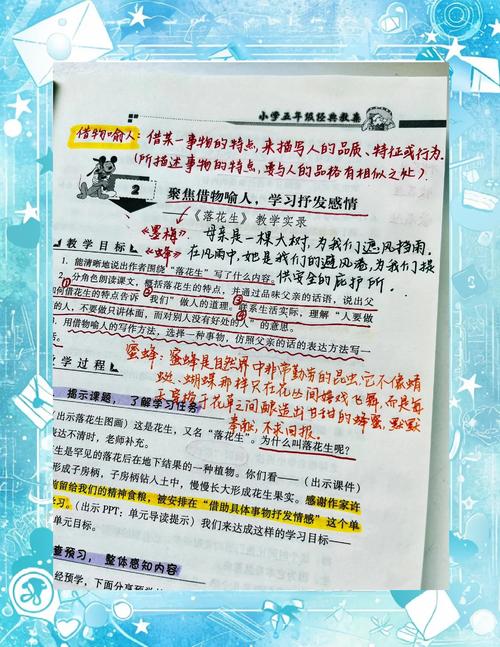 小学五年级经典教案
借物喻人：借某一事物的特点，来描写人的品质、特征或行为.
(所描述事物的特点，要与人的品格有相似之处).
2
聚焦借物喻人，学习抒发感情
——《落花生》教学实录
《墨梅》
《蜂》
母亲是一棵大树，为我们遮风挡雨.
在风雨中，她是我们的避风港，为我们提
供安全的庇护所.
教学目标
1. 能清晰地说出作者围绕“落花生”写了什么内容。
2. 分角色朗读课文，概括落花生的特点，并通过品味父亲的话语，说出父
如何借花生的特点告诉“我们”做人的道理。联系生活实际，理解“人要做
的人，不要做只讲体面，而对别人没有好处的人”的意思。
3. 用借物喻人的写作方法，选择一种事物，仿照父亲的话的表达方法写一
蜜蜂：蜜蜂是自然界中非常勤劳的昆虫，它不像蜻
蜓、蝴蝶那样只在花丛间嬉戏飞舞，而是每
天穿梭于花草之间酿造出甘甜的蜂蜜，默默
奉献，不求回报.
学过程
揭示课题，了解学习任务
（出示落花生图画）这是花生，又名“落花生”。为什么叫落花生呢？
表达不清时，老师补充。
生是罕见的落花后在地下结果的一种植物。你们看——（出示课件）
形成子房柄，子房柄钻入土中，慢慢长大形成花生果实。感谢作家许
留给我们的精神食粮，被安排在“借助具体事物抒发情感”这个单
学习。（出示PPT：单元导读提示）我们来达成这样的学习目标——
单元目标。
查预习，整体感知内容
经预学，下面分享预学